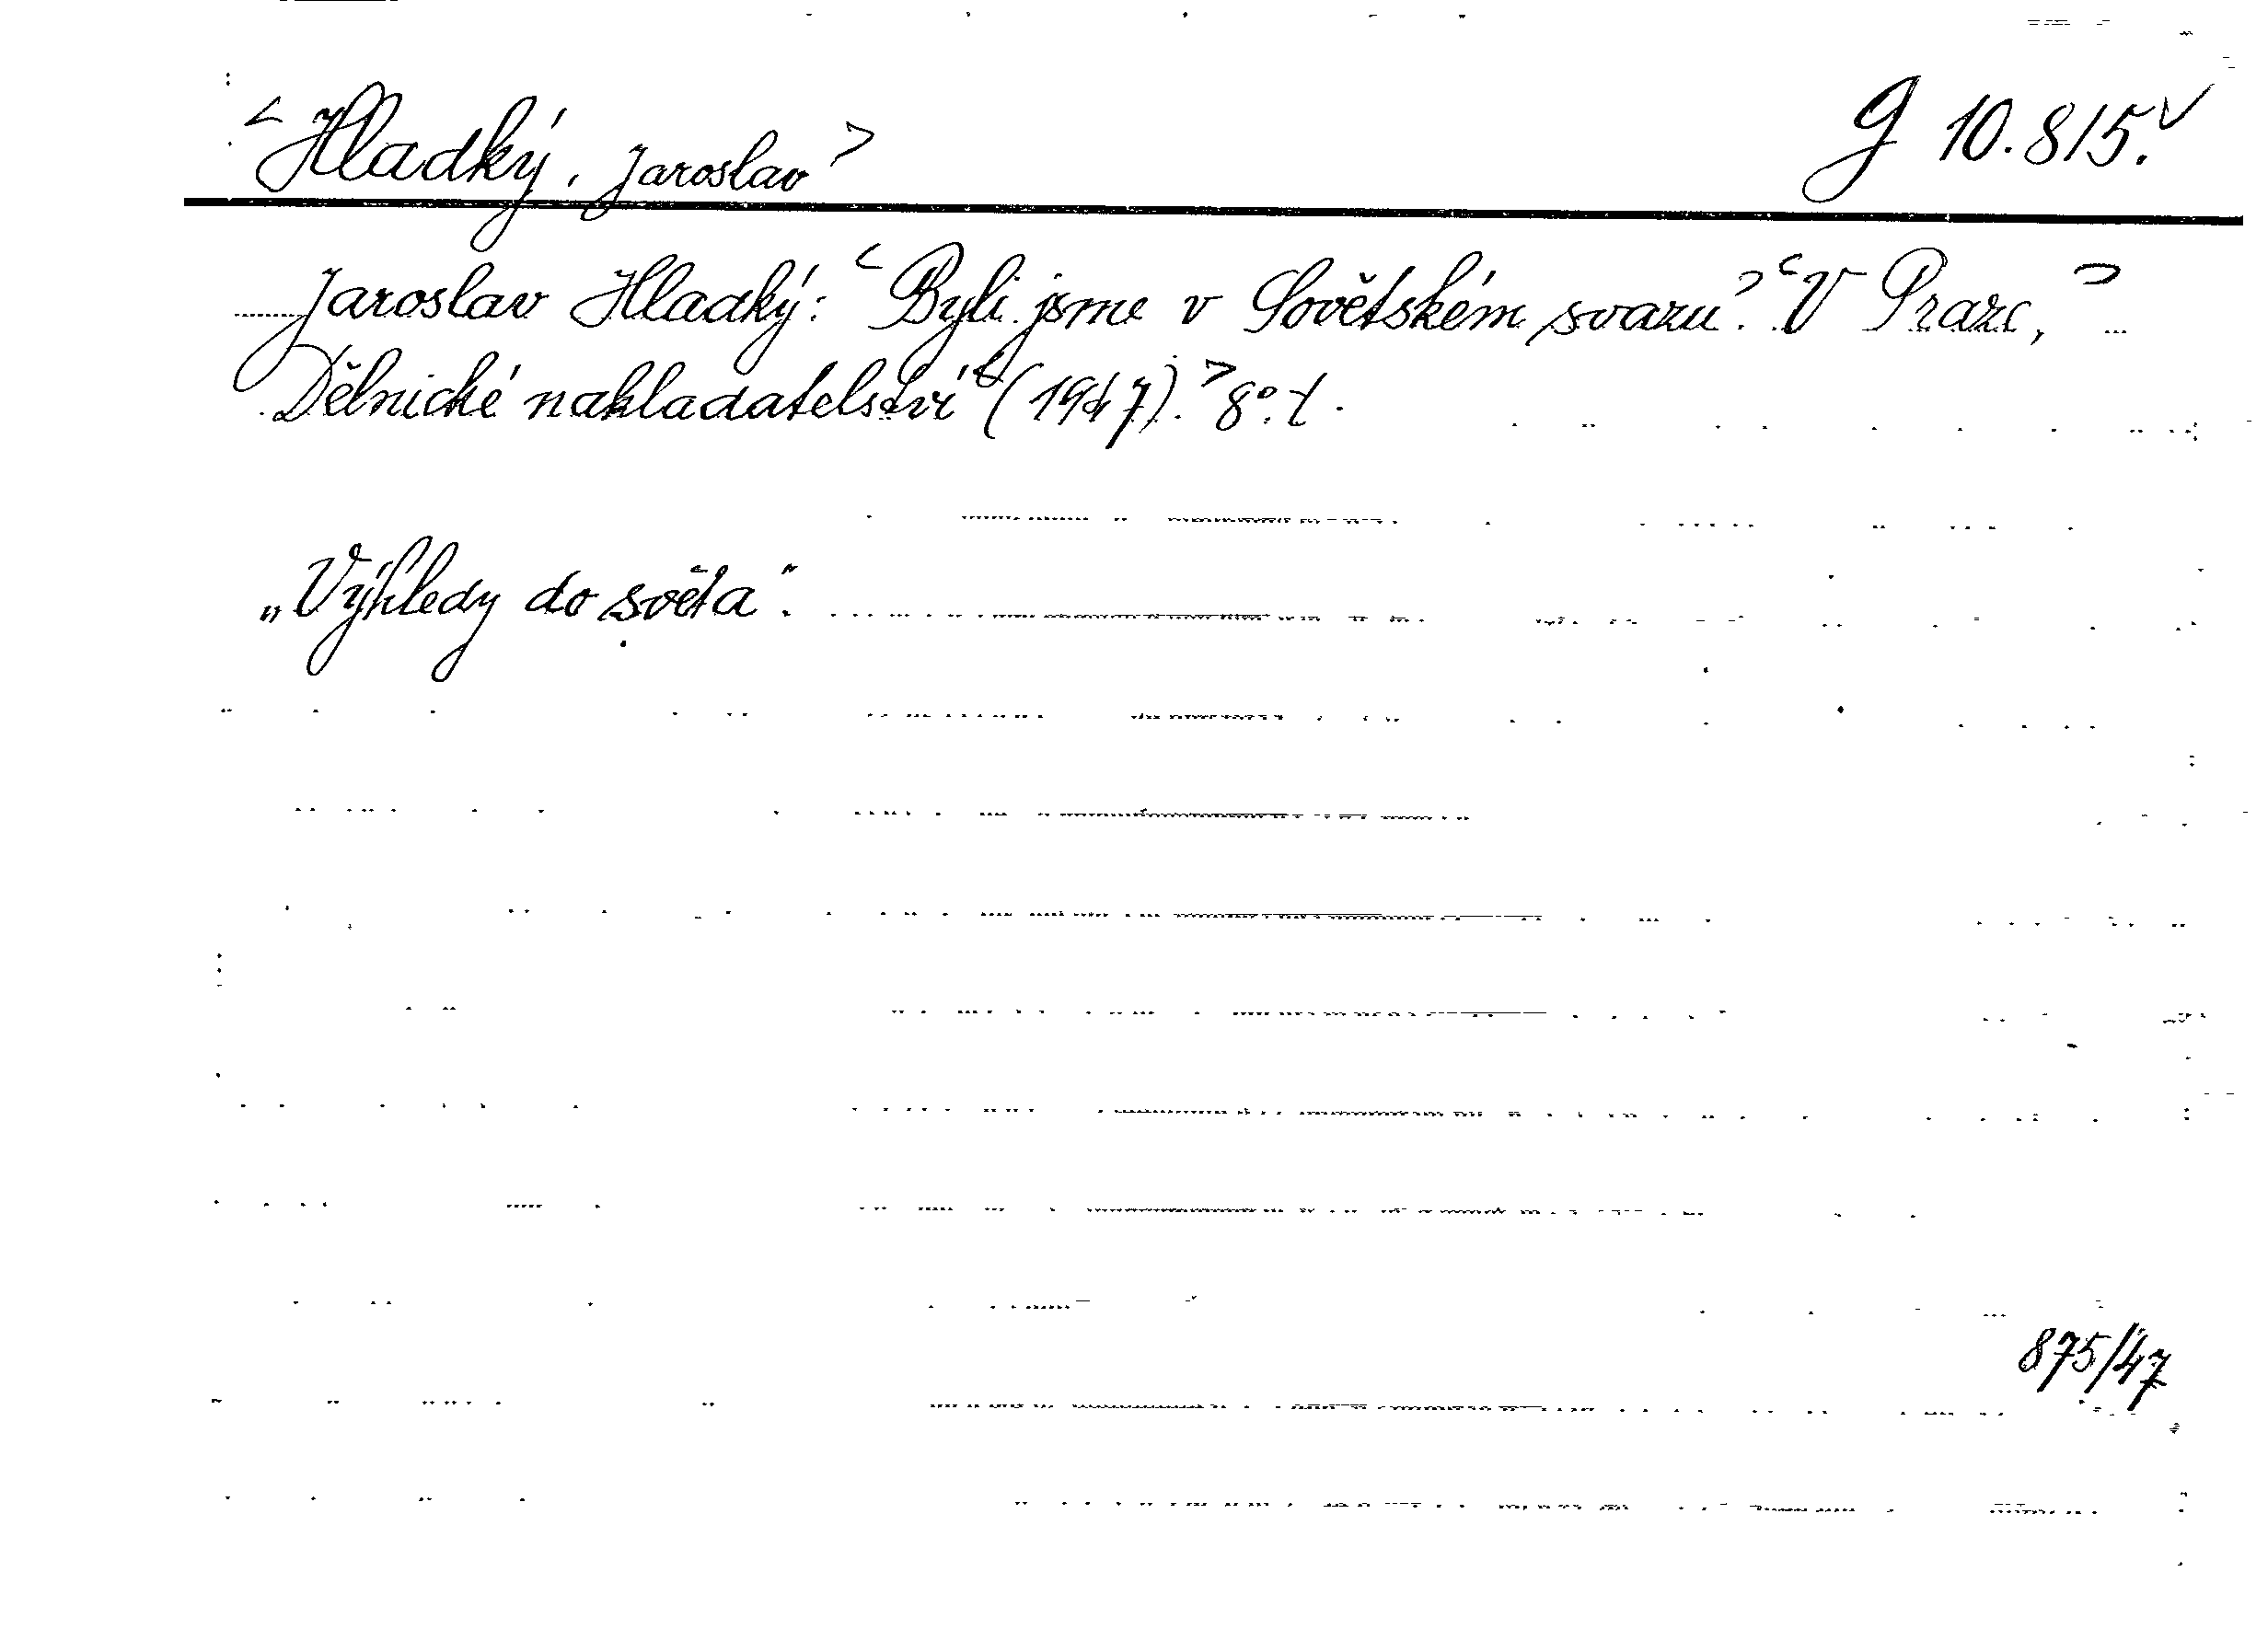 <Hladký, Jaroslav> G 10.815.✓
Jaroslav Hladký: <Byli jsme v Sovětském svazu.> <V Praze,>
Dělnické nakladatelství <(1947).> 8°.
„Výhledy do světa".
875/47